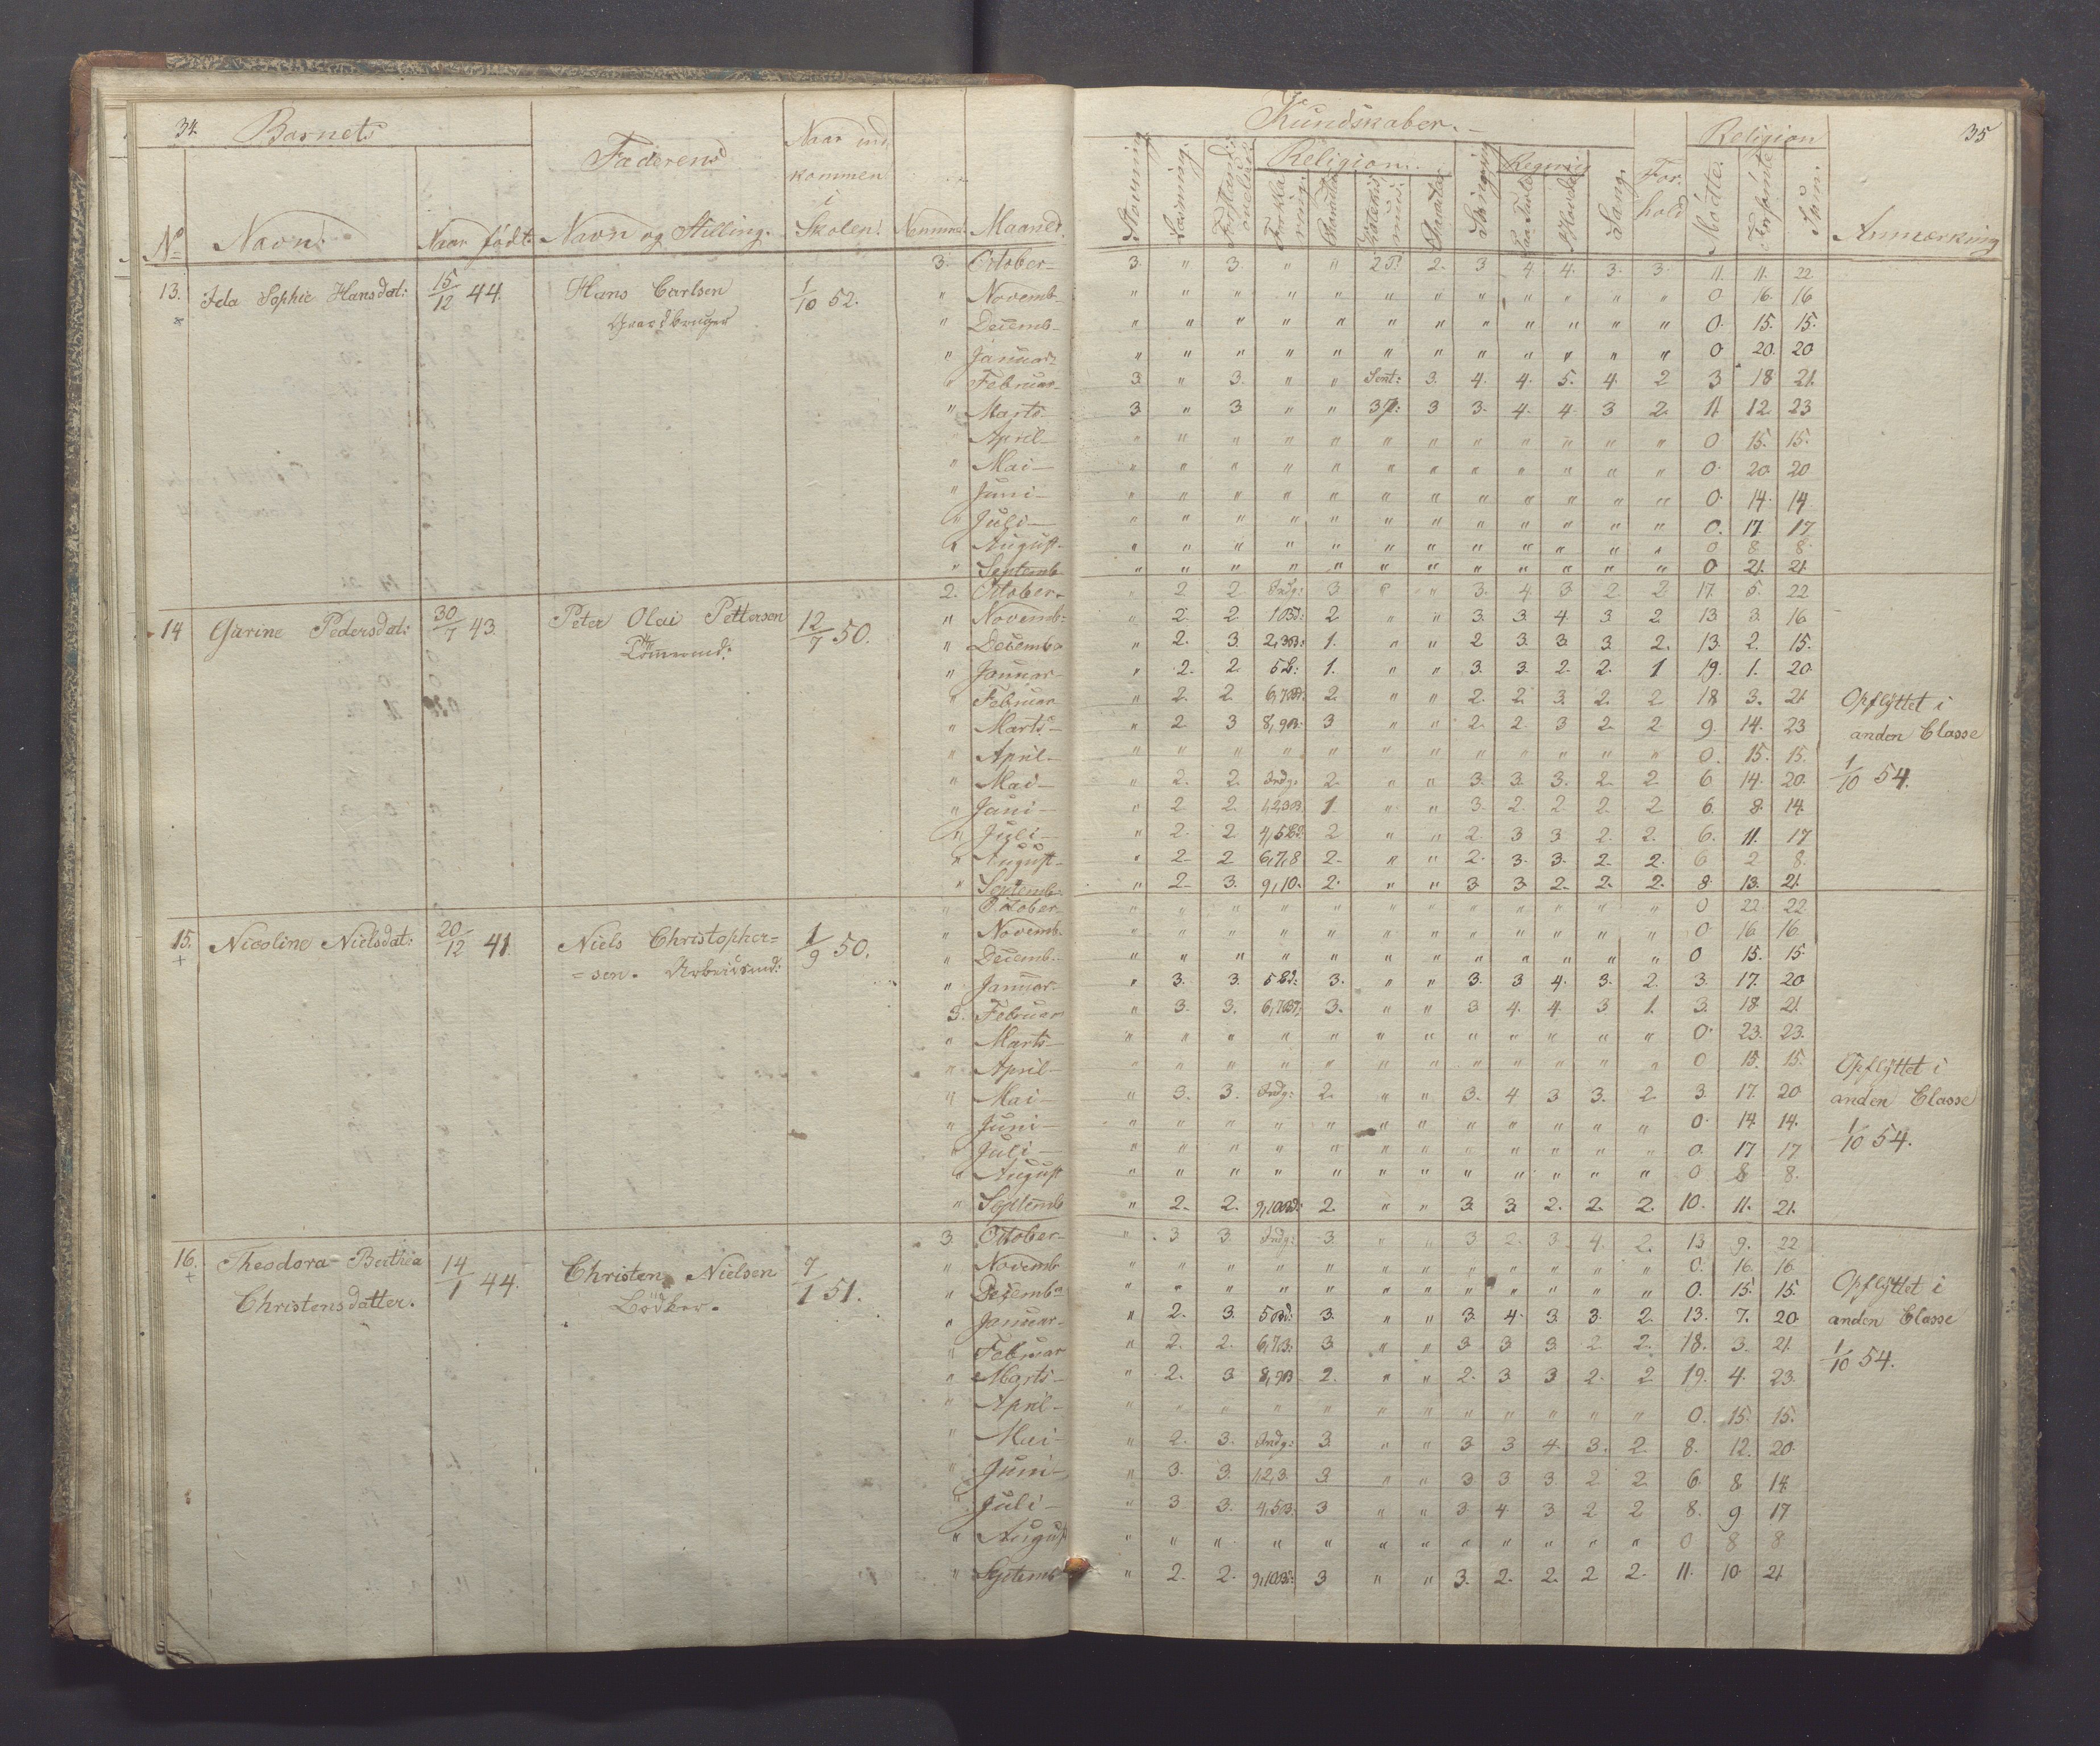 34. Barnets Faderens Naar ind Kundskaber. Religion 35
kommen Religion. Regning For-
i hold
No Navn. Naar født. Navn og Stilling. Skolen. Maaned. Stavning Læsning. Sang. Mødte. Forsømte Sum. Anmærkning
13. Ida Sophie Hansdat: 15/12 44. Hans Carlsen 1/10 52.
Gaardbruger
3. October 3. " 3. " " 2. 3 4. 4. 3. 3. 11. 11. 22
" Novemb " " " " " " " " " " " " 0 16. 16
" Decemb " " " " " " " " " " " " 0. 15. 15.
" Januar " " " " " " " " " " " " 0 20. 20
" Februar 3. " 3. " " Sent: 3. 4. 4. 5. 4. 2 3 18 21.
" Marts 3 " 3 " " 3 3. 4. 4. 3 2. 11 12. 23
" April " " " " " " " " " " " " 0 15. 15.
" Mai " " " " " " " " " " " " 0. 20. 20
" Juni " " " " " " " " " " " " 0. 14. 14
" Juli " " " " " " " " " " " " 0. 17. 17
" August " " " " " " " " " " " " 0 8 8.
" Septemb " " " " " " " " " " " " 0 21. 21
14 Garine Pedersdat: 30/7 43. Peter Olai Pettersen 12/7 50.
2. October " 2 2 Indg: 3 " " 3. 4. 3. 2 2. 17. 5. 22
" Novemb: " 2. 2. 2 " " 3. 3 4. 3. 2. 13 3. 16
" Decemb " 2. 3. 1. " " 2 3. 3. 3. 2. 13. 2. 15.
" Januar " 2. 2. 1. " " 3. 3. 2. 2. 1 19. 1. 20
" Februar " 2. 2. 2. " " 2. 2 3. 2. 2. 18 3. 21
" Marts " 2. 3 3 " " 2. 2 3 2. 2. 9. 14. 23
" April " " " " " " " " " " " " 0. 15. 15.
" Mai " 2. 2. Indg. 2. " " 3. 3. 3. 2. 2. 6 14. 20.
" Juni " 2 2. 1 " " 3. 2. 2 2. 2 6. 8. 14.
" Juli " 2. 2. 2 " " 2. 3 3. 2. 2. 6. 11. 17
" August " 2. 2 6,7,8 2. " " 2. 3. 3. 2. 2. 6 2 8.
" Septemb " 2. 3. 9,10. 2. " " 3. 3. 2. 2. 2. 8. 13. 21.
Opflyttet i
anden Classe
1/10 54.
15. Nicoline Nielsdat: 20/12 41. Niels Christopher= 1/9 50.
+ =sen. Arbeidsmd:
" October " " " " " " " " " " " " 0 22 22
" Novemb. " " " " " " " " " " " " 0. 16. 16.
" Decemb. " " " " " " " " " " " " 0 15. 15.
" Januar " 3. 3. 3. " " 3. 3 4. 3. 2. 3. 17. 20
3. Februar " 3. 3. 3. " " 3 4. 4. 3 1. 3. 18. 21.
" Marts " " " " " " " " " " " " 0. 23. 23.
" April " " " " " " " " " " " " 0 15. 15.
" Mai " 3. 3. Indg: 2. " " 3. 4 3 3. 2 3. 17. 20
" Juni " " " " " " " " " " " " 0. 14 14.
" Juli " " " " " " " " " " " " 0. 17 17
" August " " " " " " " " " " " " 0 8 8.
" Septemb " 2. 2. 2. " " 3. 3. 2. 2. 2. 10. 11. 21.
Opflyttet i
anden Classe
1/10 54.
16. Theodora Berthea 14/1 44. Christen Nielsen 7/1 51.
+ Christensdatter. Bødker.
3 October " 3 3. Indg: 3. " " 3 2. 3. 4. 2. 13 9. 22
" Novemb " " " " " " " " " " " " 0. 16. 16
" Decemb " " " " " " " " " " " " 0. 15. 15.
" Januar " 2. 3. 3. " " 3 4. 3. 3. 2. 13. 7. 20
" Februar " 2. 2. 3 " " 3 3 3. 2 2. 18. 3. 21.
" Marts " 2. 3 2. " " 2. 3. 3 2. 2 19. 4. 23.
" April " " " " " " " " " " " " 0. 15. 15.
" Mai " 2. 3. Indg: 3. " " 3 3 4. 3. 2. 8. 12. 20.
" Juni " 3. 3. 1,2,3. 3. " " 3 3 3. 2 2. 6. 8. 14.
" Juli " 3 3. 4,5. 3 " " 3. 4. 3 2 2 8. 9 17
" August " " " " " " " " " " " " 0 8 8
" Septemb " 2. 2. 3 " " 3. 2. 2. 2 2. 11. 10. 21
Opflyttet i
anden Classe
1/10 54.